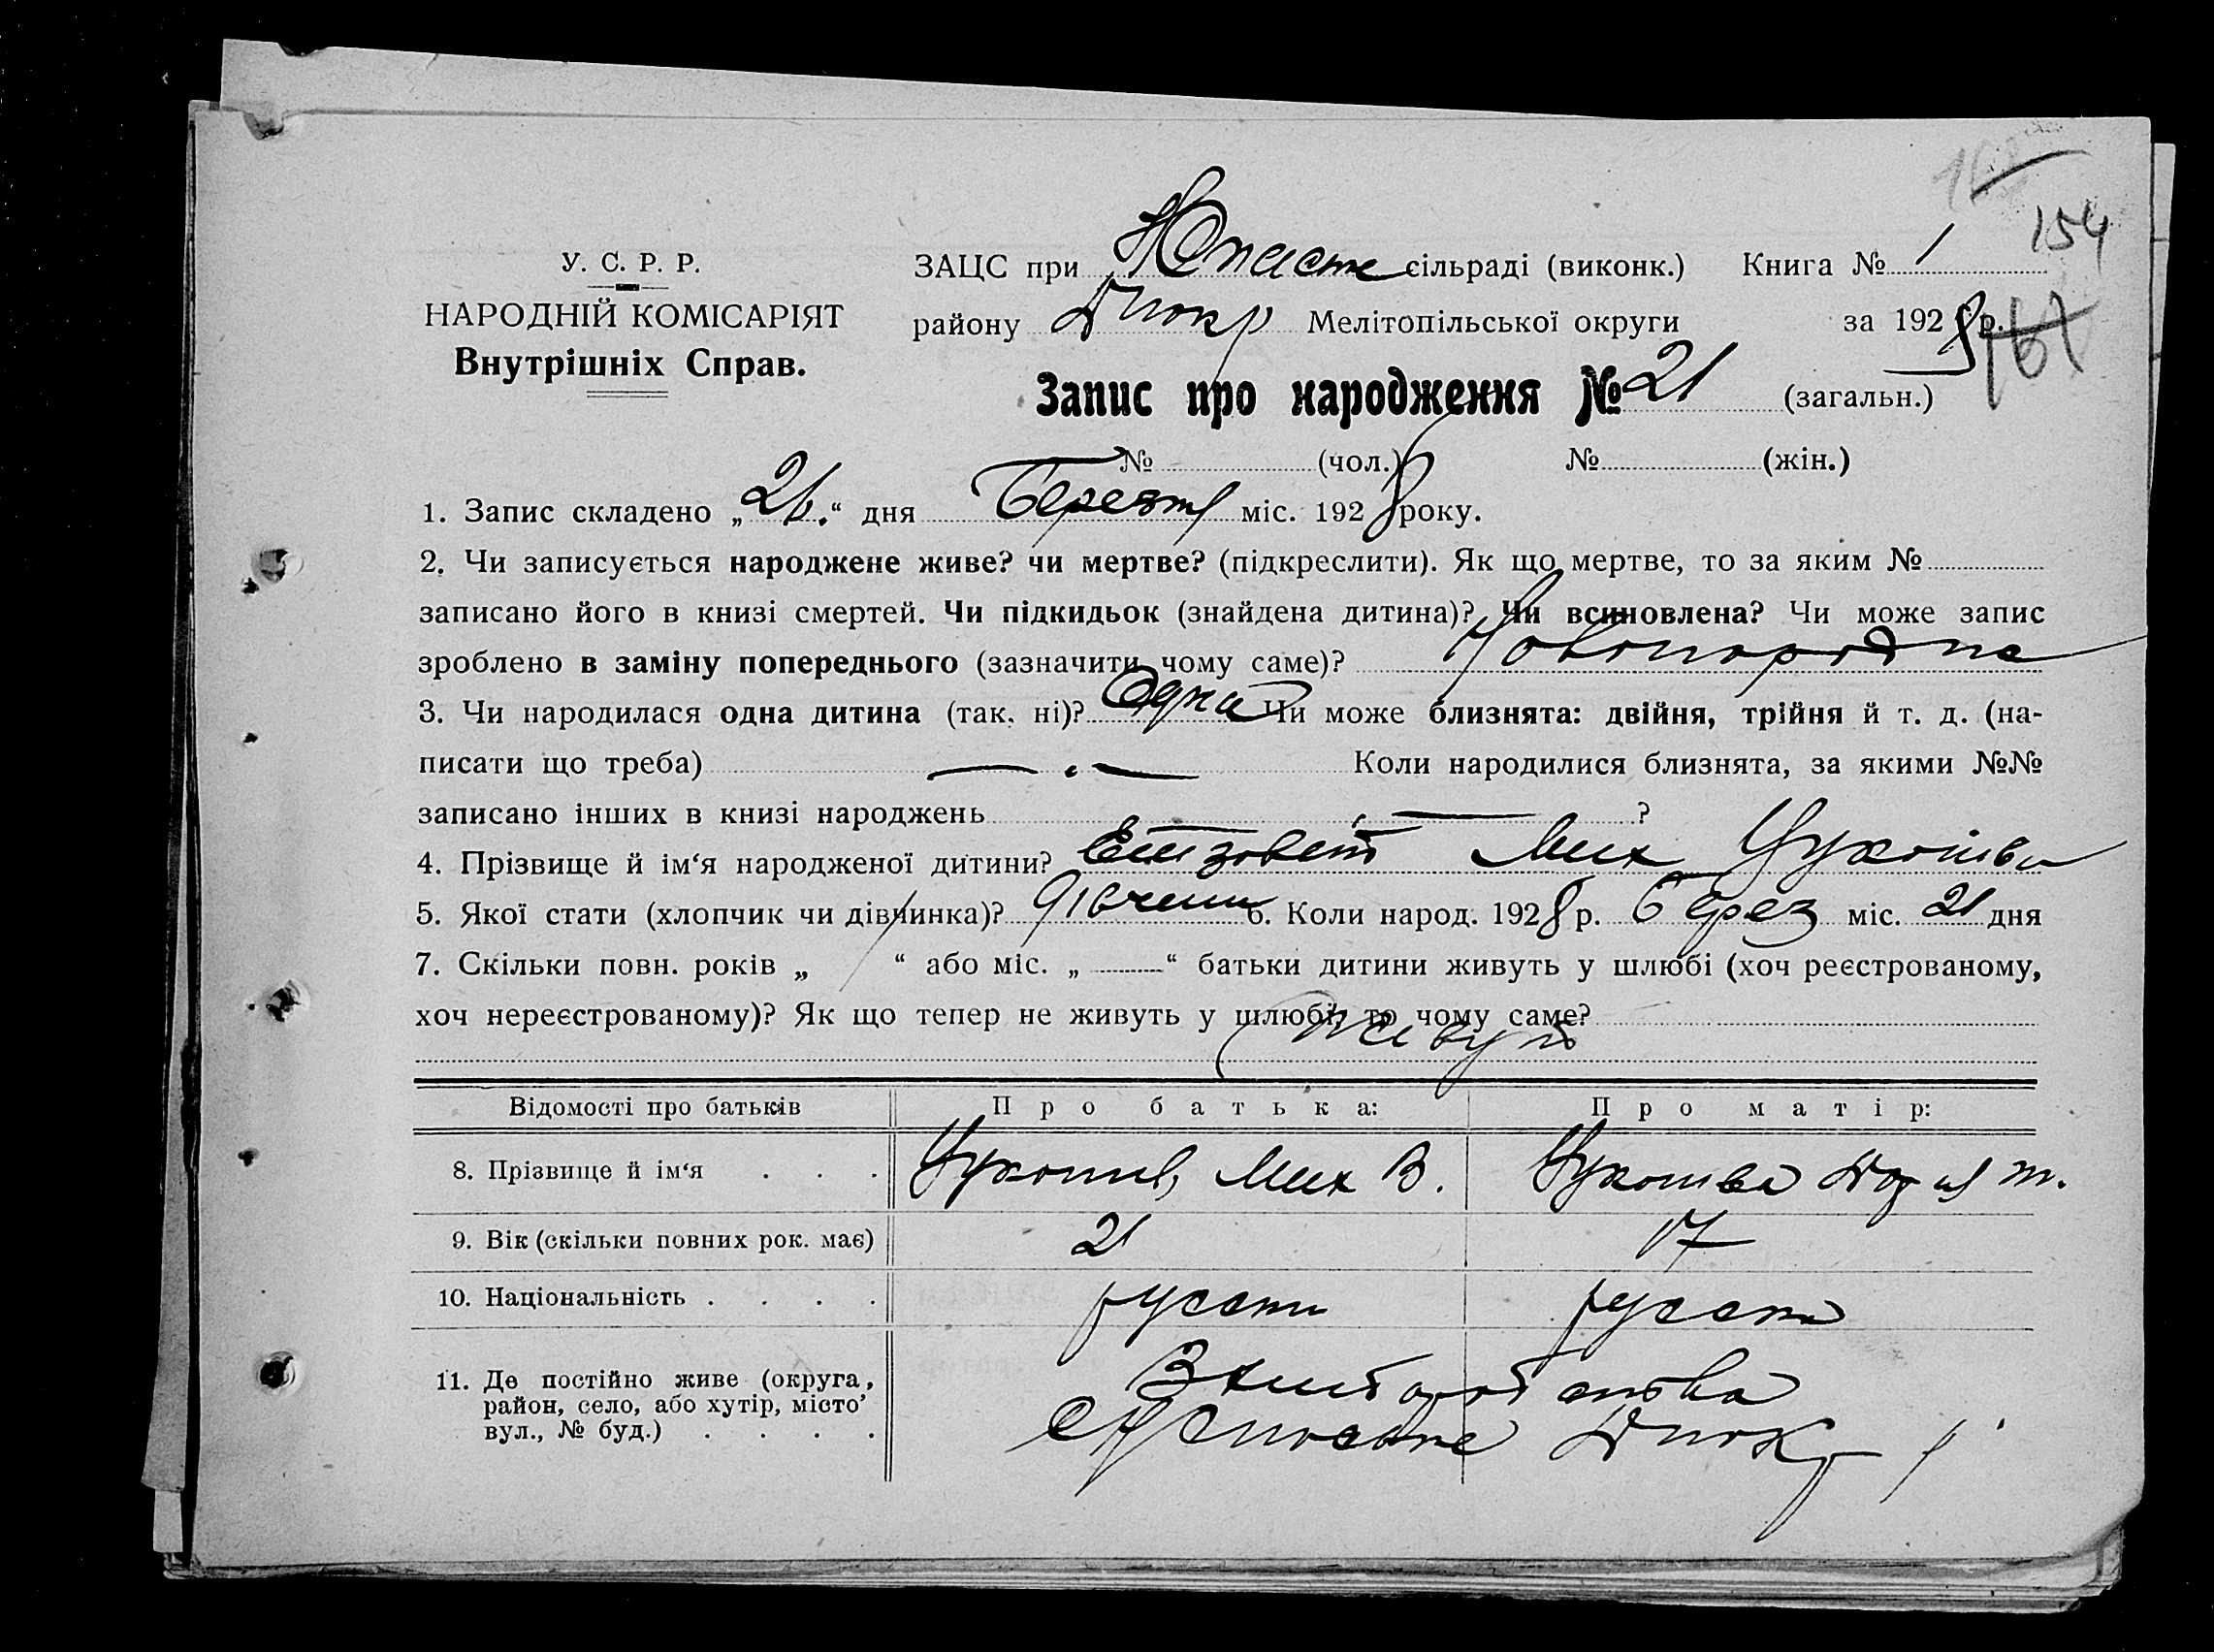 154
У. С. Р. Р.
НАРОДНІЙ КОМІСАРІЯТ
Внутрішніх Справ.
ЗАЦС при сільраді (виконк.) Книга № 1
району Мелітопільської округи за 1928 р.
161
Запис про народження № 21 (загальн.)
№ (чол.) № (жін.)
1. Запис складено „26.“ дня міс. 1928 року.
2. Чи записується народжене живе? чи мертве? (підкреслити). Як що мертве, то за яким №
записано його в книзі смертей. Чи підкидьок (знайдена дитина)? Чи всиновлена? Чи може запис
зроблено в заміну попереднього (зазначити чому саме)? 
3. Чи народилася одна дитина (так, ні)? Одна Чи може близнята: двійня, трійня й т. д. (на-
писати що треба) — „ — Коли народилися близнята, за якими №№
записано інших в книзі народжень — ?
4. Прізвище й ім‘я народженої дитини? Елизовет Мих
5. Якої стати (хлопчик чи дівчинка)? 6. Коли народ. 1928 р. Берез міс. 21 дня
7. Скільки повн. років „ “ або міс. „ “ батьки дитини живуть у шлюбі (хоч реєстрованому,
хоч нереєстрованому)? Як що тепер не живуть у шлюбі, то чому саме?
Живут
Відомості про батьків Про батька: Про матір:
8. Прізвище й ім‘я . . . Мих В. Т.
9. Вік (скільки повних рок. має) 21 17
10. Національність . . . .
11. Де постійно живе (округа,
район, село, або хутір, місто’
вул., № буд.) . . . .